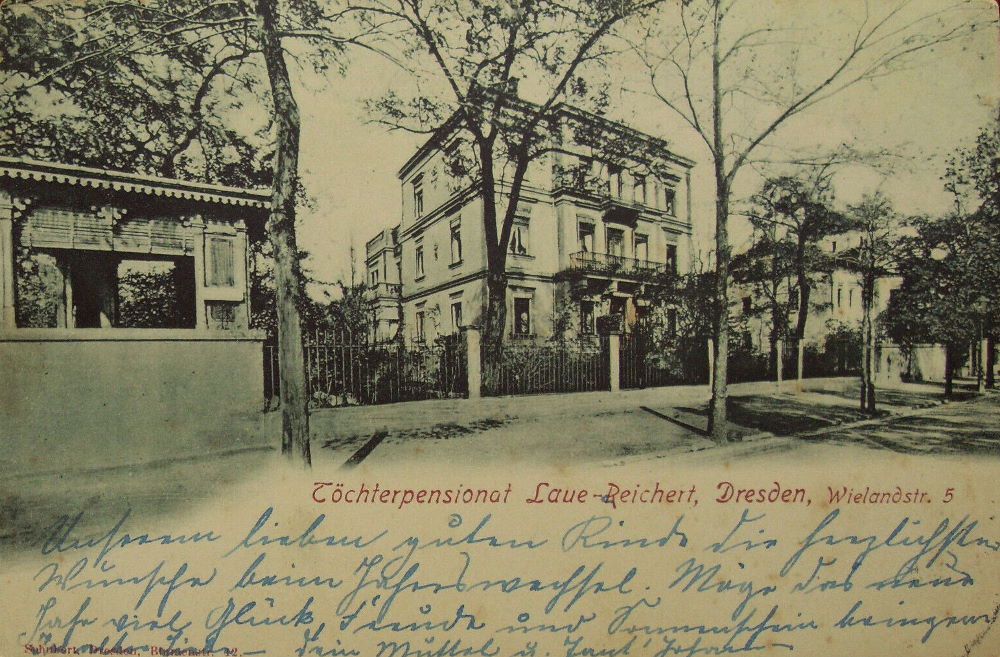 Töchterpensionat Laue-Reichert, Dresden, Wielandstr. 5
Unserem lieben guten Kinde die herzlichsten
Wünsche beim Jahreswechsel. Möge das neue
Jahr viel Glück, Freude und Sonnenschein bringen
dein Muttel u. Tant
Schubert, Dresden, 12.